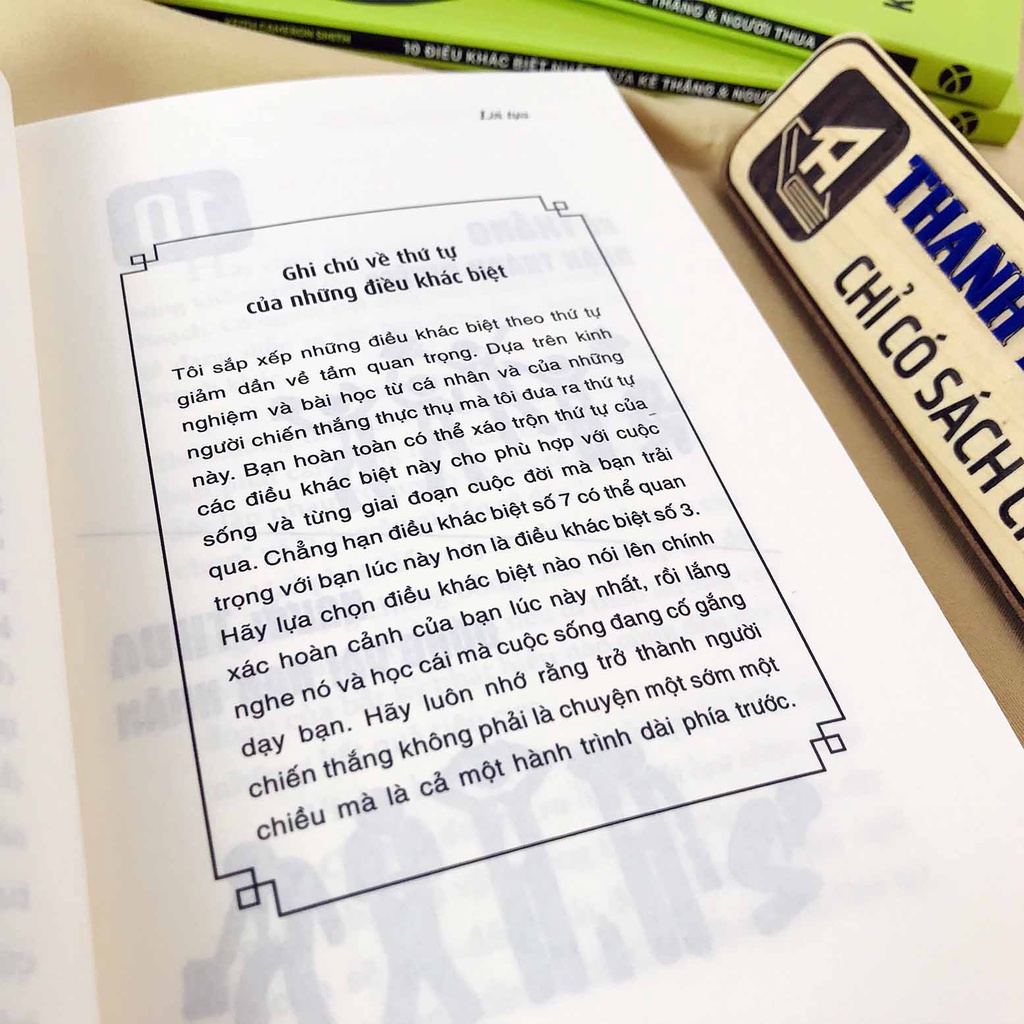 KẺ THẮNG & NGƯỜI THUA
KEITH CAMERON SMITH
10 ĐIỀU KHÁC BIỆT NHẤT GIỮA KẺ THẮNG & NGƯỜI
Lời tựa
Ghi chú về thứ tự
của những điều khác biệt
Tôi sắp xếp những điều khác biệt theo thứ tự
giảm dần về tầm quan trọng. Dựa trên kinh
nghiệm và bài học từ cá nhân và của những
người chiến thắng thực thụ mà tôi đưa ra thứ tự
này. Bạn hoàn toàn có thể xáo trộn thứ tự của
các điều khác biệt này cho phù hợp với cuộc
sống và từng giai đoạn cuộc đời mà bạn trải
qua. Chẳng hạn điều khác biệt số 7 có thể quan
trọng với bạn lúc này hơn là điều khác biệt số 3.
Hãy lựa chọn điều khác biệt nào nói lên chính
xác hoàn cảnh của bạn lúc này nhất, rồi lắng
nghe nó và học cái mà cuộc sống đang cố gắng
dạy bạn. Hãy luôn nhớ rằng trở thành người
chiến thắng không phải là chuyện một sớm một
chiều mà là cả một hành trình dài phía trước.
A
THANH
CHỈ CÓ SÁCH